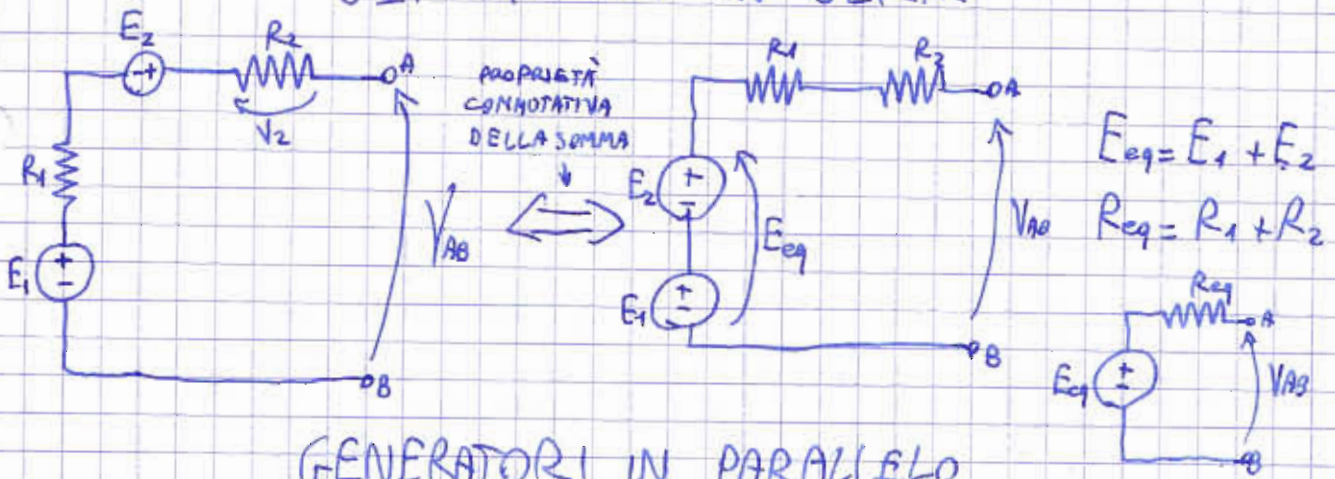 E2
R2
A
V2
R1
E1
VAB
B
PROPRIETÀ
COMMOTATIVA
DELLA SOMMA
R1
R2
A
E2
E1
Eeq
VAB
B
Eeq = E1 + E2
Req = R1 + R2
Req
A
Eeq
VAB
B
GENERATORI IN PARALLELO